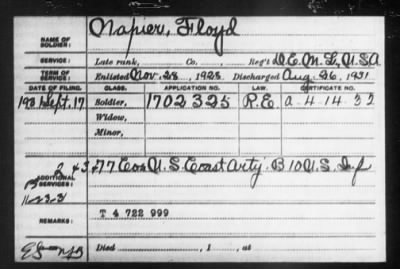 NAME OF SOLDIER: Napier, Floyd
SERVICE: Late rank, Co., Reg't D.E.M.L. U.S.A
TERM OF SERVICE: Enlisted Nov. 28, 1928. Discharged Aug. 26, 1931
DATE OF FILING. CLASS. APPLICATION NO. LAW. CERTIFICATE NO.
1931 Sept. 17 Soldier, 1702325 P.E. A-4-14-32
Widow,
Minor,
ADDITIONAL SERVICES: 2 & 3 & 77 Cos U.S. Coast Arty. B 10 U.S. Inf
REMARKS: T 4 722 999
Died , 1 , at